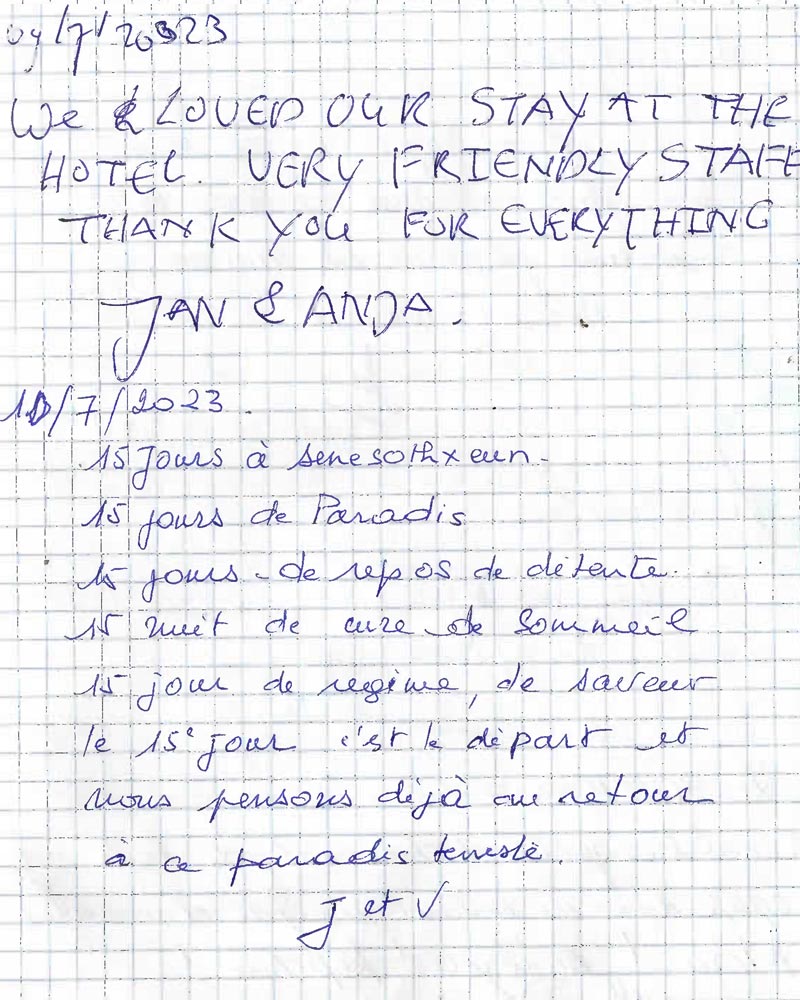 09/7/2023
We LOVED OUR STAY AT THE
HOTEL. VERY FRIENDLY STAFF
THANK YOU FOR EVERYTHING
JAN & ANDA.
10/7/2023.
15 Jours à
15 jours de Paradis
15 jours - de repos de détente.
15 nuit de cure de Sommeil
15 jour de regime, de saveur
le 15e jour c'est le départ et
nous pensons déjà au retour
à ce paradis
J et V